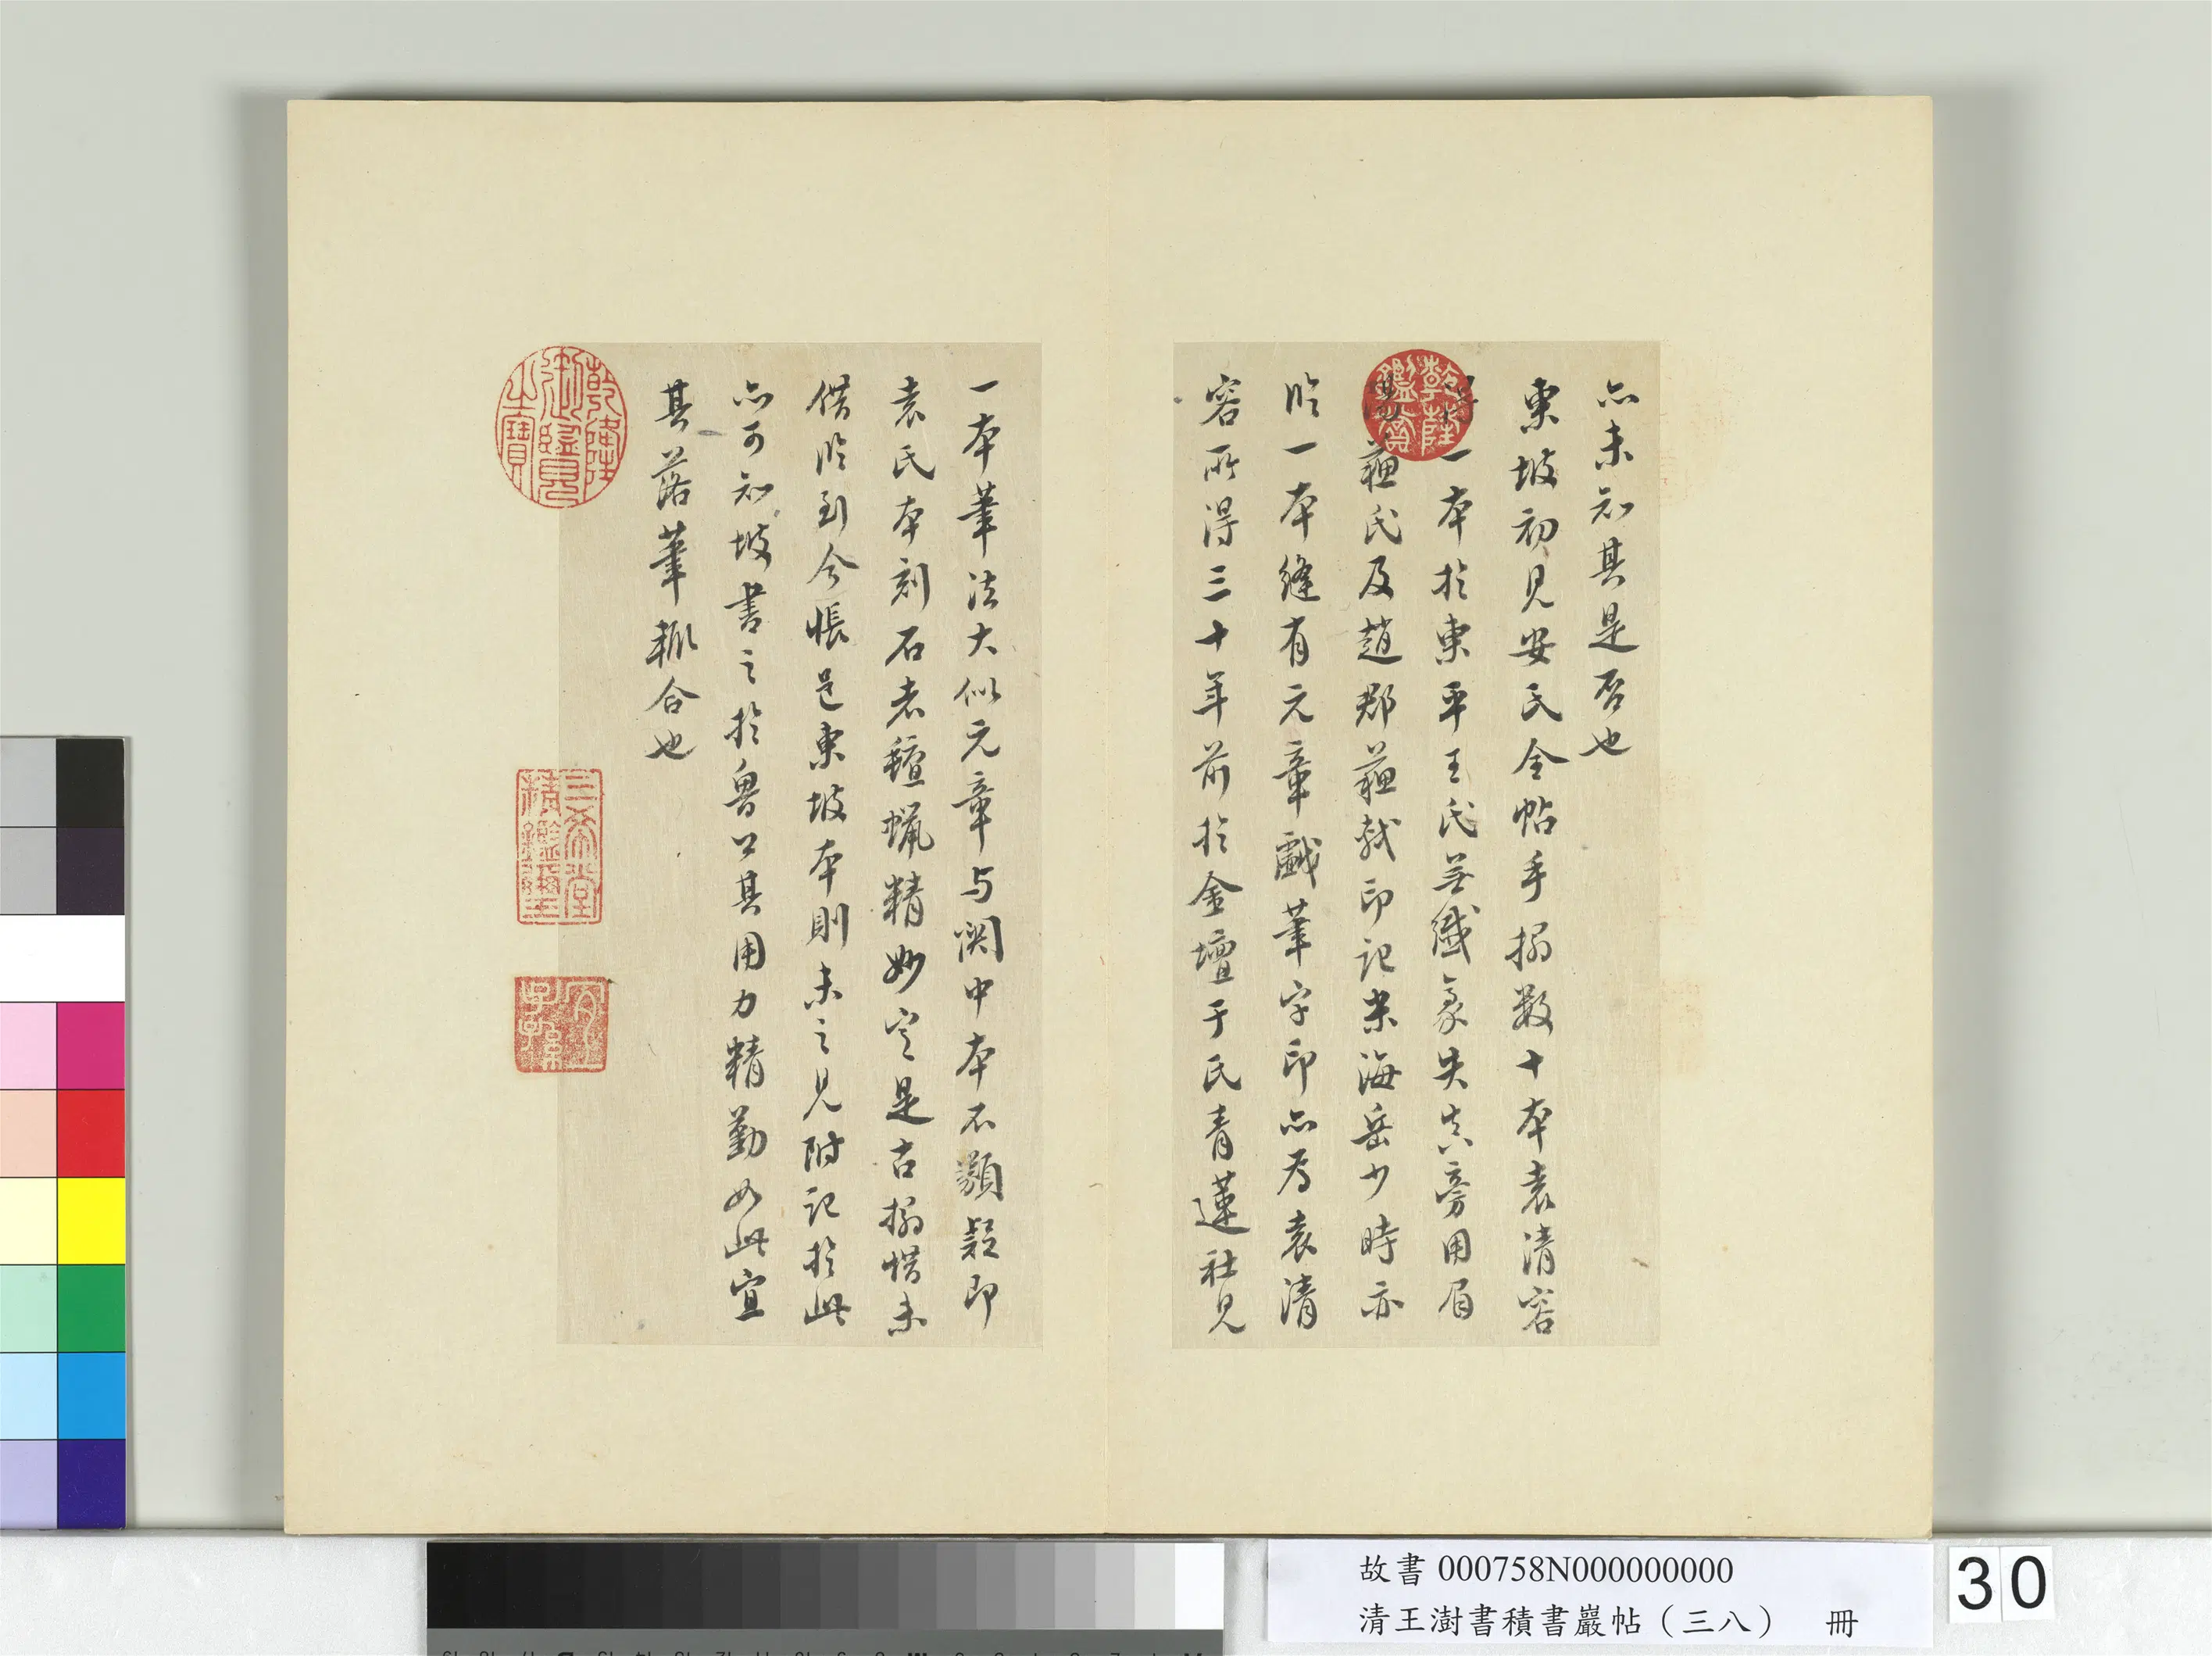 亦未知其是否也
東坡初見安氏全帖手搨數十本袁清容
得一本於東平王氏無纖豪失真旁用眉
陽蘇氏及趙郡蘇軾印記米海岳少時亦
臨一本縫有元章戲筆字印亦為袁清
容所得三十年前於金壇于氏青蓮社見
一本筆法大似元章与関中本不類疑即
袁氏本刻石者氊蠟精妙定是古搨惜未
借臨到今悵邑東坡本則未之見附記於此
亦可知坡書之於魯公其用力精勤如此宜
其落筆輒合也
乾隆鑑賞
乾隆御覽之寶
三希堂精鑑璽
宜子孫
故書 000758N000000000
清王澍書積書巖帖（三八） 冊
30